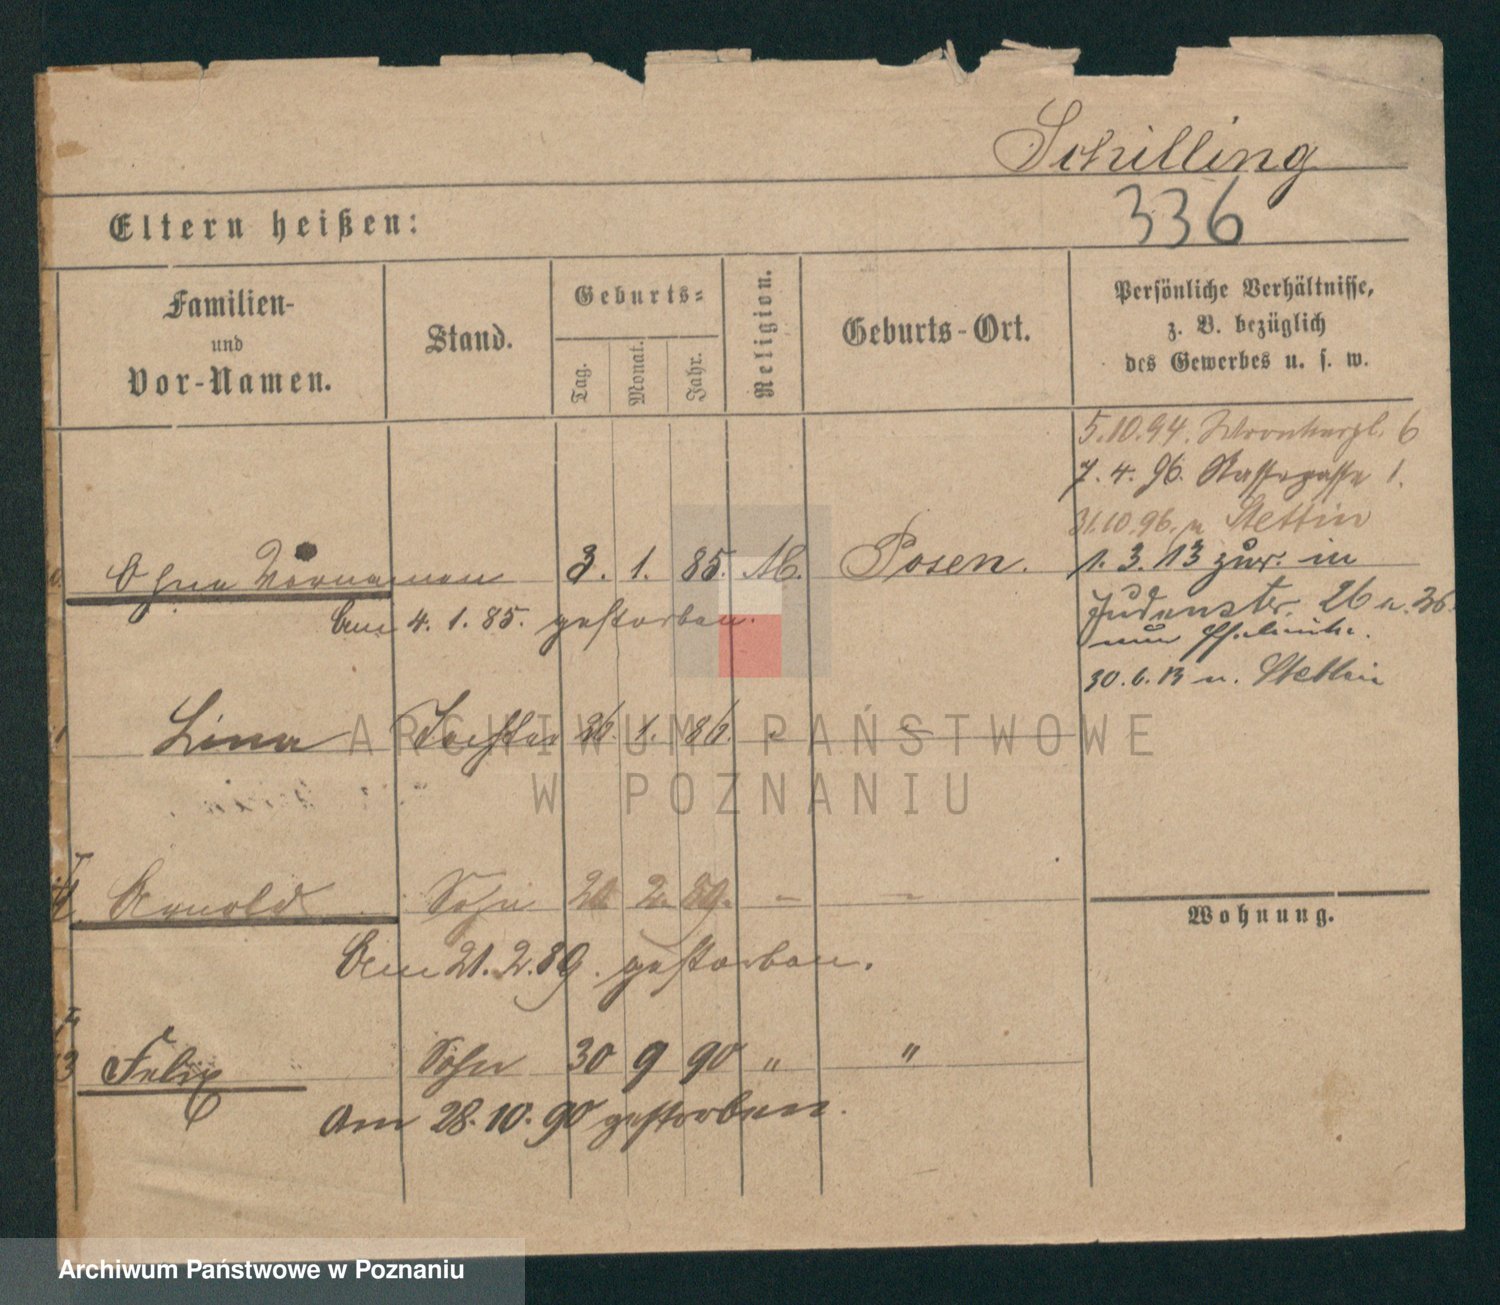 Schilling
336
Eltern heißen:
Familien-
und
Vor-Namen.
Stand.
Geburts-
Tag.
Monat.
Jahr.
Religion.
Geburts-Ort.
Persönliche Verhältnisse,
z. B. bezüglich
des Gewerbes u. s. w.
5.10.94. Wronkerpl. 6
7.4.96. 1.
31.10.96. n Stettin
Ohne Vornamen 3. 1. 85. M. Posen.
1.3.13 zur. in
Am 4.1.85. gestorben.
Judenstr. 26 n. 36.
30.6.13 n. Stettin
Lina Tochter 26. 1. 86.
Arnold Sohn 20 2. 89. - -
Wohnung.
Am 21.2.89. gestorben.
3 Felix Sohn 30 9 90 " "
Am 28.10.90 gestorben.
ARCHIWUM PAŃSTWOWE
W POZNANIU
Archiwum Państwowe w Poznaniu